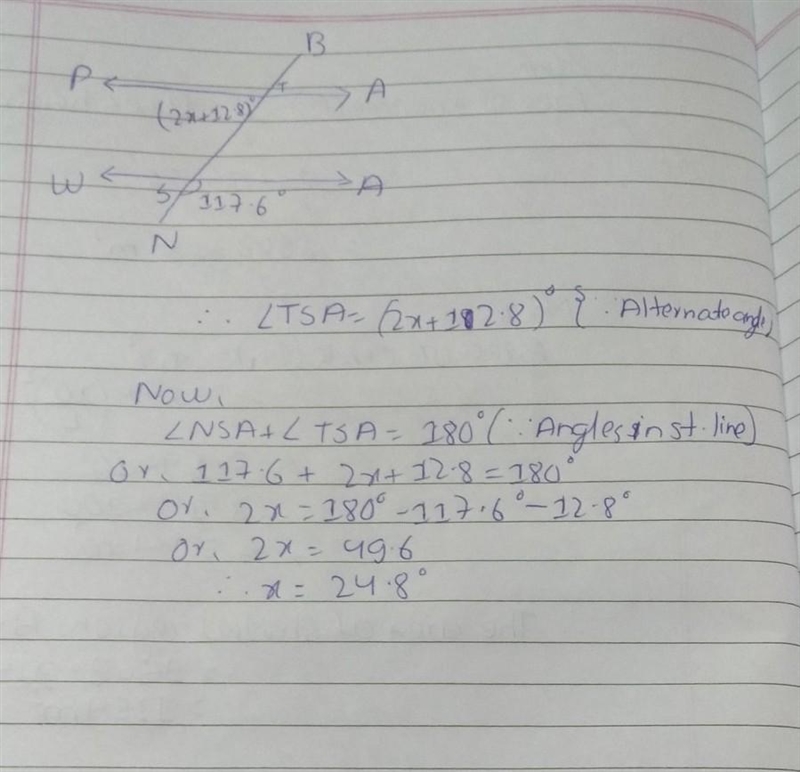 B
P T A
(2x+12.8)°
W A
S 117.6°
N
∴ ∠TSA= (2x+112.8)° {∵ Alternate angle}
Now,
∠NSA+∠TSA= 180° (∵Angles in st. line)
Or, 117.6 + 2x+12.8=180°
Or, 2x=180°-117.6°-12.8°
Or, 2x= 49.6
∴ x= 24.8°